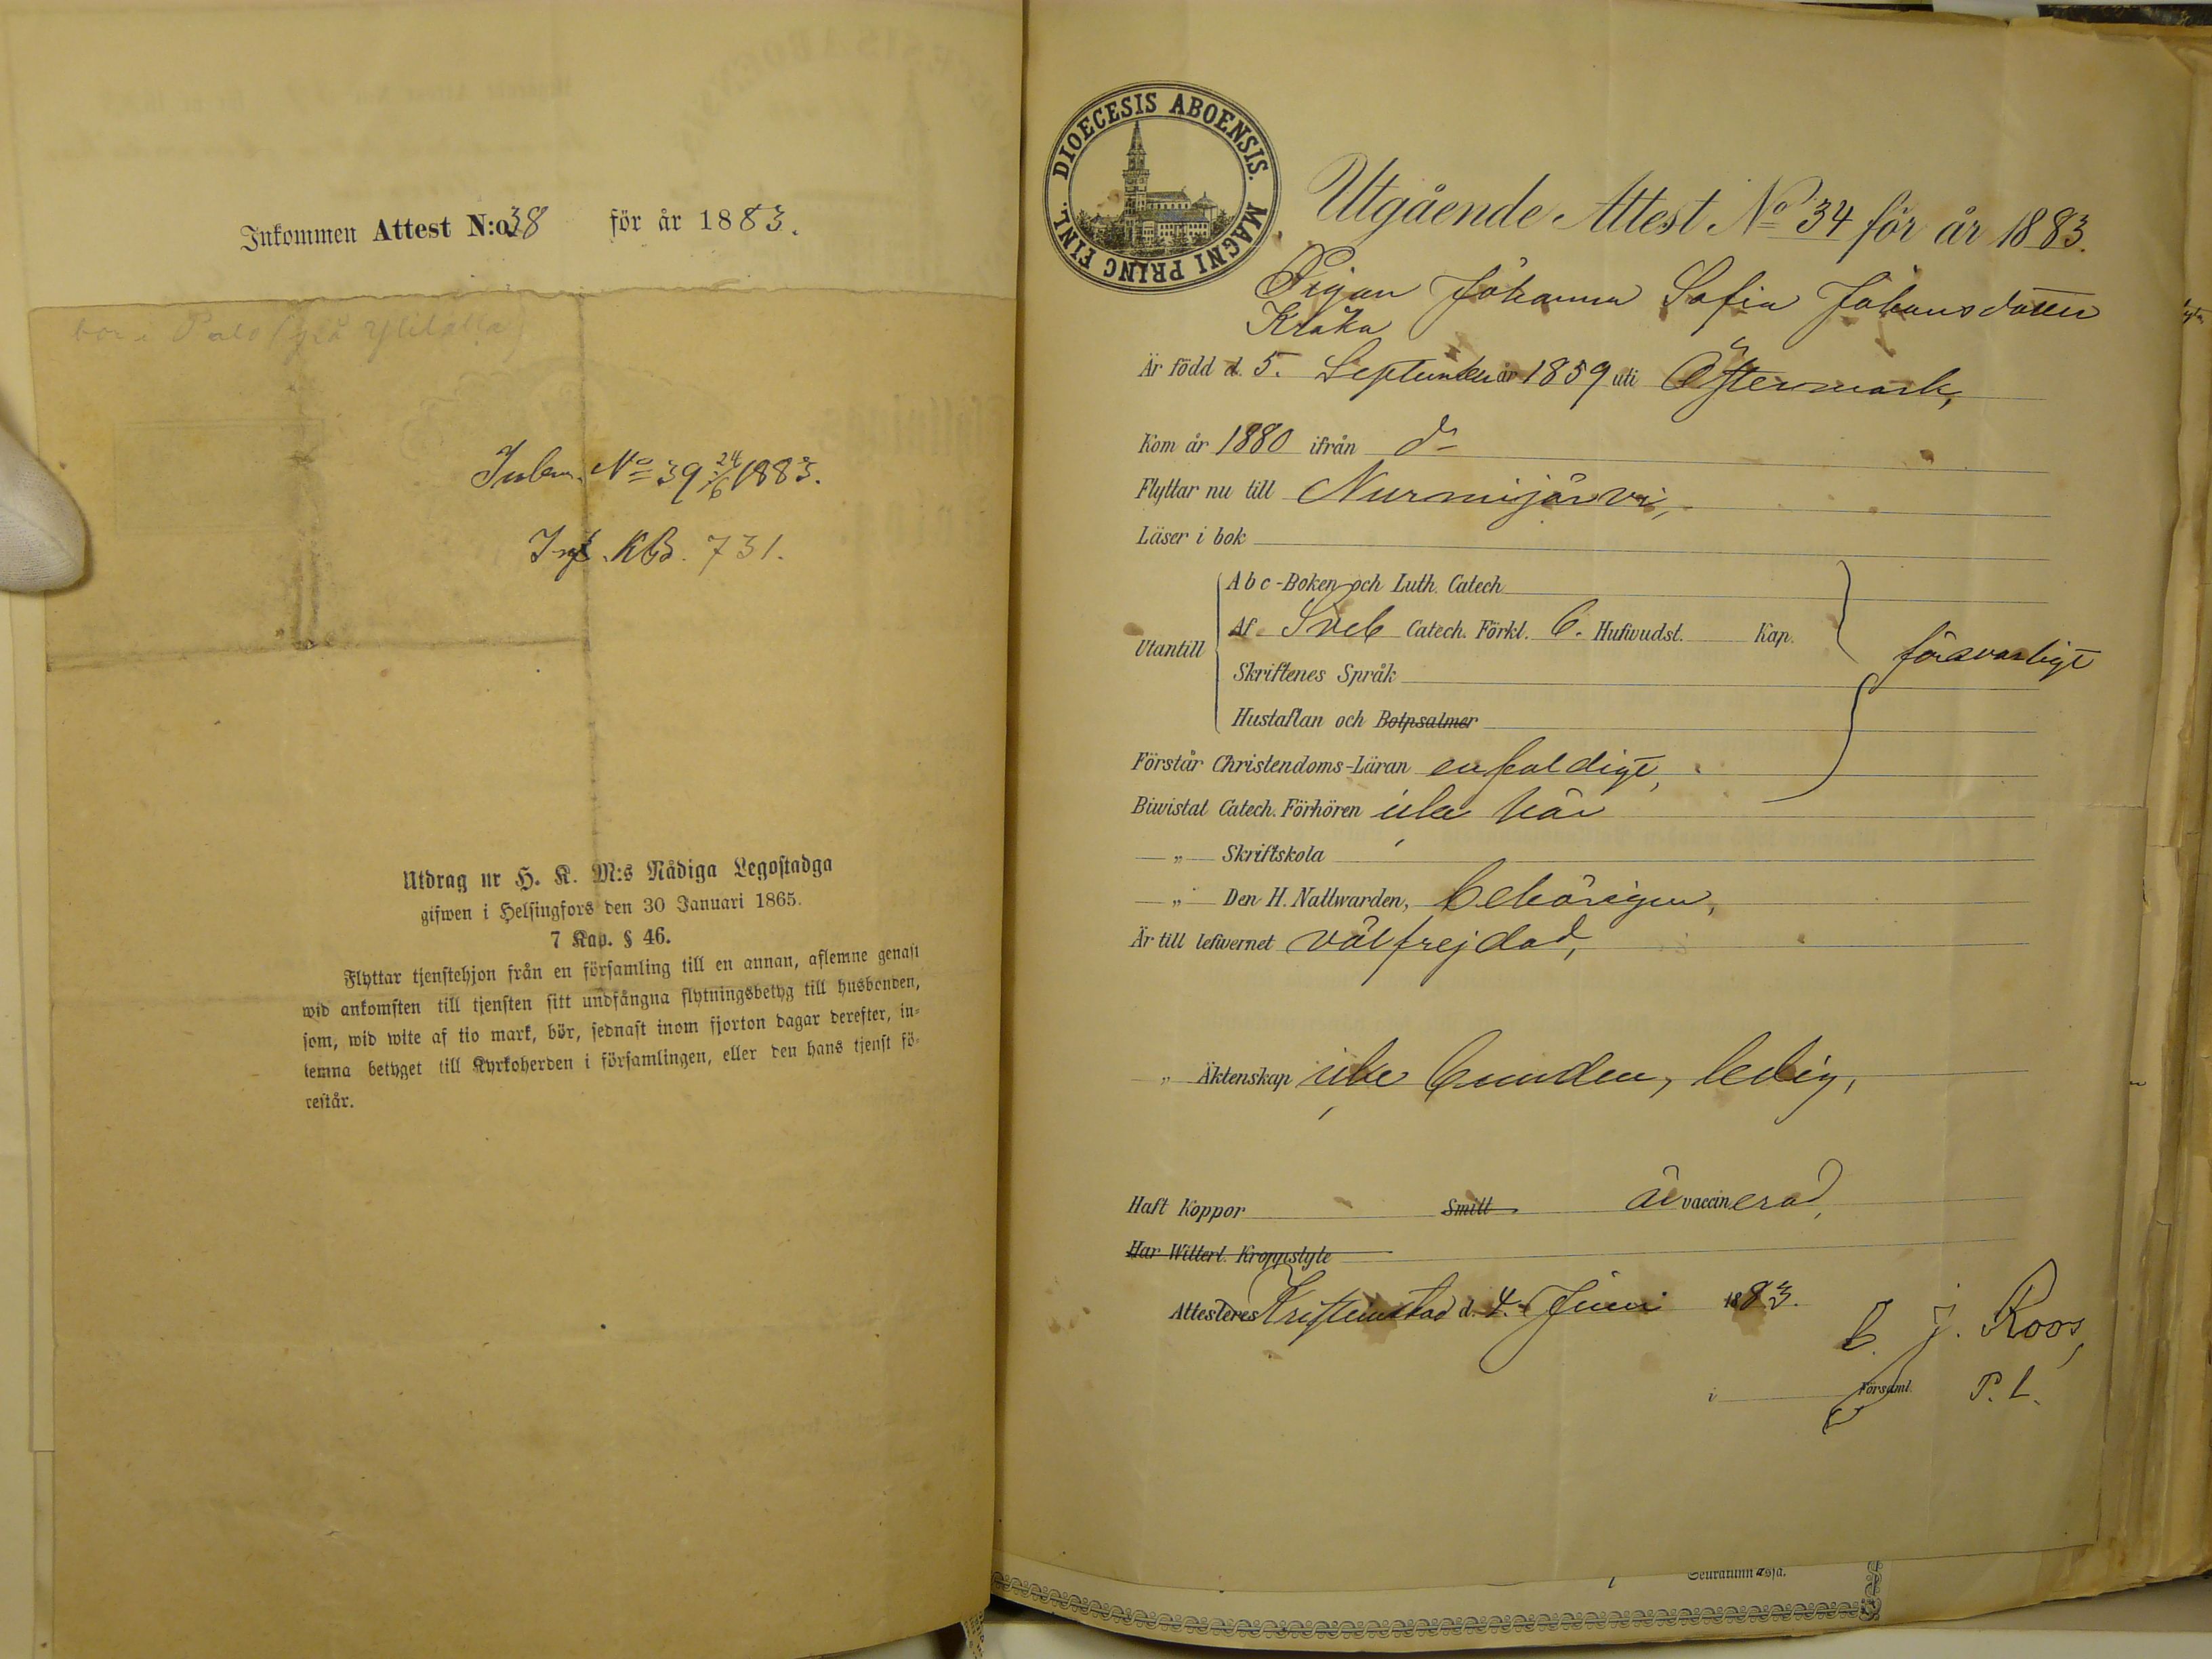 Inkommen Attest N:o 38 för år 1883.
bor i Palo (på Ylitalla)
Inkom. No 39 24/6 1883.
Inf. KB. 731.
Utdrag ur H. K. M:s Nådiga Legostadga
gifwen i Helsingfors den 30 Januari 1865.
7 Kap. § 46.
Flyttar tjenstehjon från en församling till en annan, aflemne genast
wid ankomsten till tjensten sitt undfångna flytningsbetyg till husbonden,
som, wid wite af tio mark, bör, sednast inom fjorton dagar derefter, in-
lemna betyget till Kyrkoherden i församlingen, eller den hans tjenst fö-
restår.
DIOECESIS ABOENSIS. MAGNI PRINC FINL.
Utgående Attest No 34 för år 1883.
Pigan Johanna Sofia Johansdotter
Kråka
Är född d. 5. September år 1859 uti Östermark,
Kom år 1880 ifrån do
Flyttar nu till Nurmijärvi,
Läser i bok
Abc-Boken och Luth. Catech
Utantill
Af Sveb Catech. Förkl. 6. Hufwudst. Kap.
försvarligt
Skriftenes Språk
Hustaflan och Botpsalmer
Förstår Christendoms-Läran enfaldigt,
Biwistat Catech. Förhören icke här
„ Skriftskola
„ Den H. Nattwarden, behörigen,
Är till lefwernet välfrejdad,
„ Äktenskap icke bunden, ledig,
Haft Koppor Smitt är vaccinerad,
Har Witterl. Kroppslyte
Attesteres Kristinestad d. 4. Juni 1883.
J. Roos,
i Församl. P. L.
Seurakunnassa.